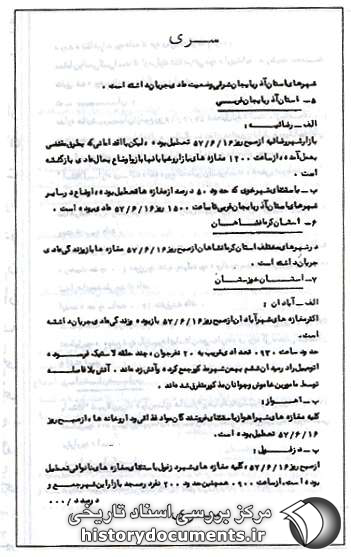 سری
شهرهای استان آذربایجان شرقی وضعیت عادی جریان داشته است .
۵ – استان آذربایجان غربی
الف – رضائیه :
بازار شهر رضائیه از صبح روز ۵۷/۶/۱۶ تعطیل بوده ولیکن با اقداماتی که بطرق مقتضی
بعمل آمده ، از ساعت ۱۲۰۰ مغازه های بازار رضائیه باز و اوضاع بحال عادی بازگشته
است .
ب – باستثنای شهر خوی که حدود ۵۰ درصد از مغازه ها تعطیل بوده ، اوضاع در سایر
شهرهای استان آذربایجان غربی تا ساعت ۱۵۰۰ روز ۵۷/۶/۱۶ عادی بوده است .
۶ – استان کرمانشاهان
در شهرهای مختلف استان کرمانشاهان از صبح روز ۵۷/۶/۱۶ مغازه ها باز و زندگی عادی
جریان داشته است .
۷ – استان خوزستان
الف – آبادان :
اکثر مغازه های شهر آبادان از صبح روز ۵۷/۶/۱۶ باز بوده و زندگی عادی جریان داشته
است .
حدود ساعت ۰۹۳۰ تعدادی قریب به ۲۰ نفر جوان ، چند حلقه لاستیک فرسوده
اتومبیل را در زمین ششم بهمن شهر ذکر جمع کرده و آتش زده اند . آتش بلافاصله
توسط مامورین خاموش و جوانان مذکور متفرق شده اند .
ب – اهواز :
کلیه مغازه های شهر اهواز باستثنای فروشندگان مواد غذائی و داروخانه ها ، از صبح روز
۵۷/۶/۱۶ تعطیل بوده است .
پ – دزفول :
از صبح روز ۵۷/۶/۱۶ ، کلیه مغازه های شهر دزفول باستثنای مغازه های نانوائی تعطیل
بوده است . از ساعت ۰۹۰۰ همچنین حدود ۲۰۰ نفر در مسجد بازار این شهر جمع و
در صدد /۰۰۰
مرکز بررسی اسناد تاریخی
historydocuments.ir